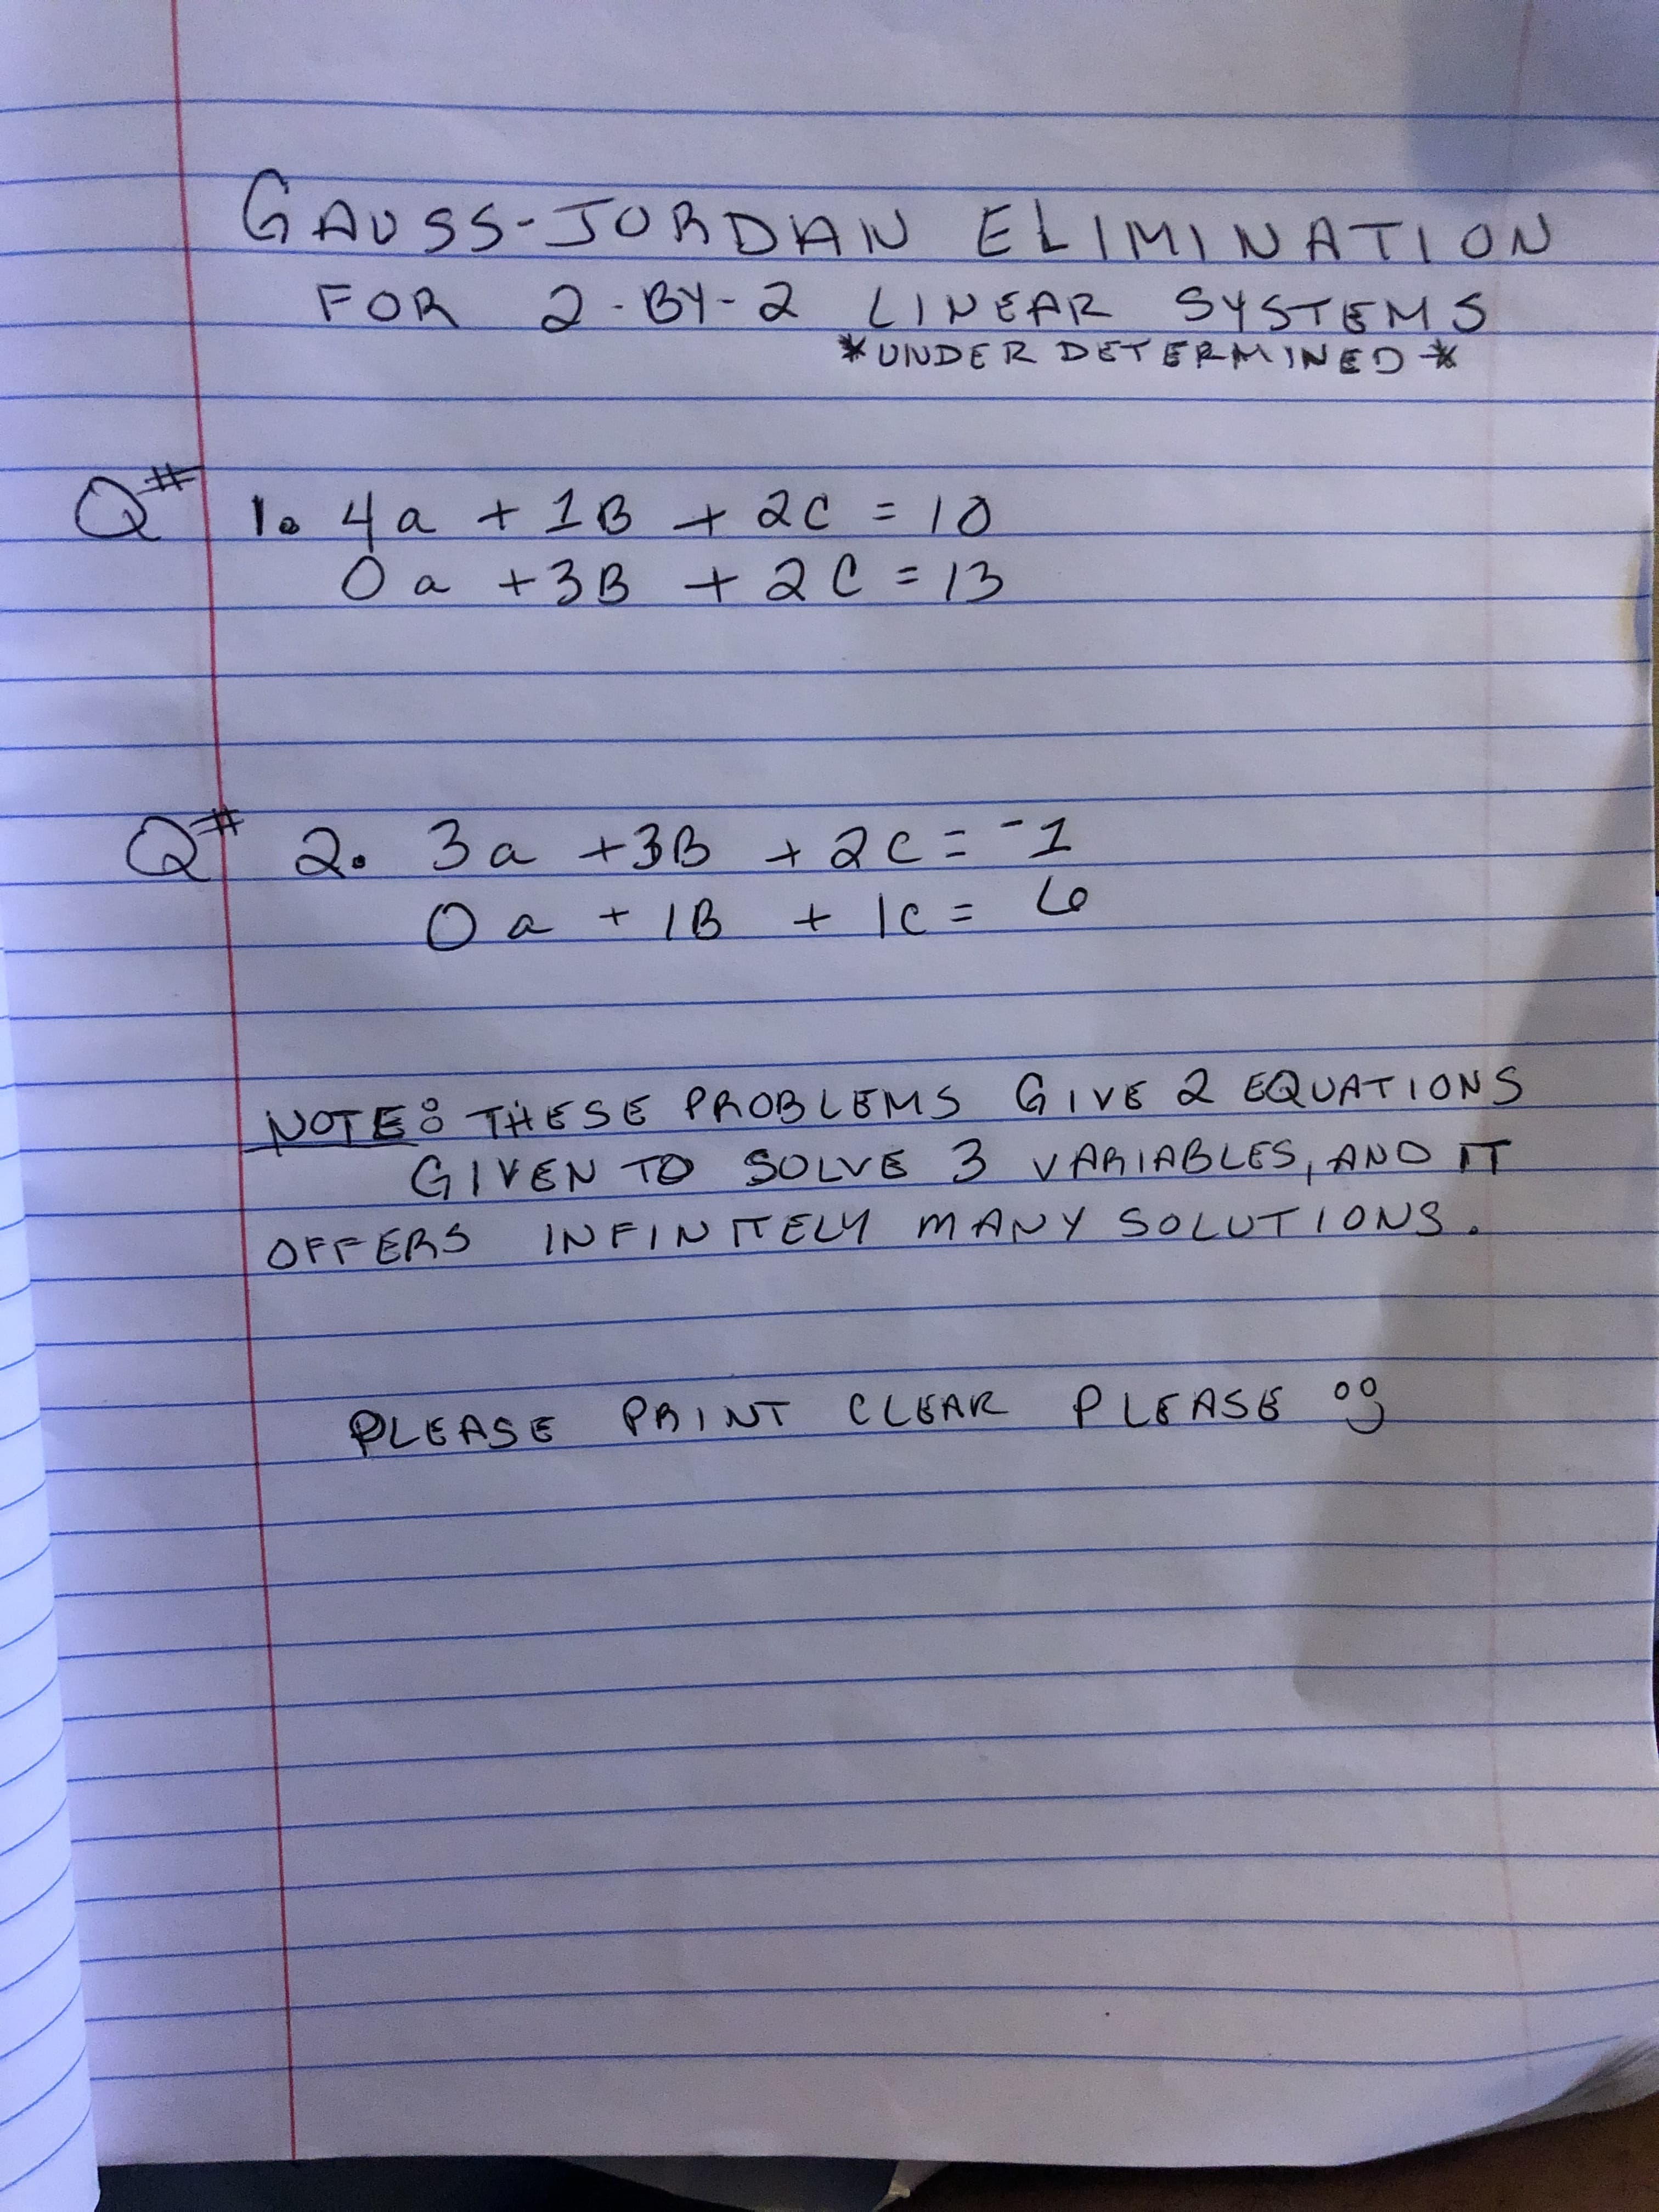 GAUSS-JORDAN ELIMINATION
FOR 2-BY-2 LINEAR SYSTEMS
*UNDER DETERMINED*
Q# 1. 4a + 1B + 2C = 10
0a + 3B + 2C = 13
Q# 2. 3a + 3B + 2C = -1
0a + 1B + 1C = 6
NOTE: THESE PROBLEMS GIVE 2 EQUATIONS
GIVEN TO SOLVE 3 VARIABLES, AND IT
OFFERS INFINITELY MANY SOLUTIONS.
PLEASE PRINT CLEAR PLEASE